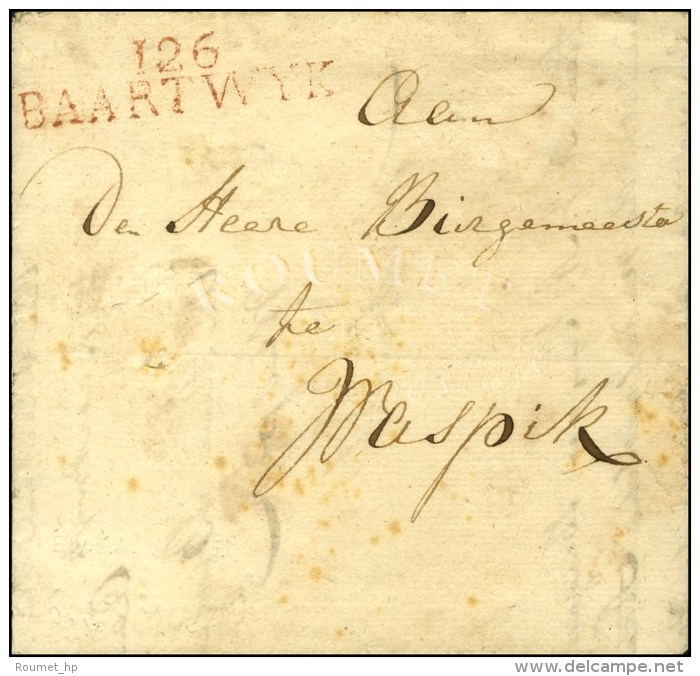 126
BAARTWYK
Aan
Den Heere Burgemeester
te
Waspik
ROUMET
Roumet_hp
delcampe.net